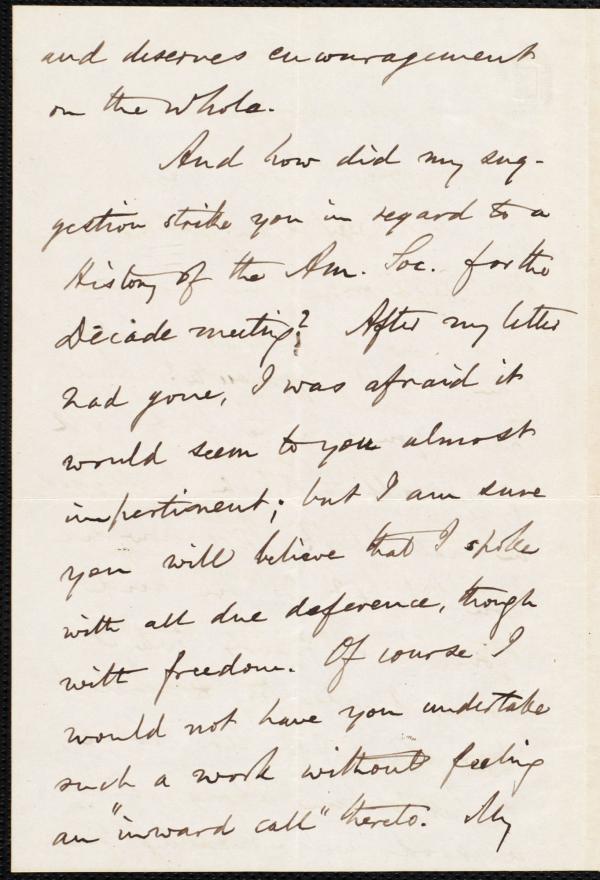 and deserves encouragement
on the whole.
And how did my sug-
gestion strike you in regard to a
History of the Am. Soc. for the
Decade meeting? After my letter
had gone, I was afraid it
would seem to you almost
impertinent; but I am sure
you will believe that I spoke
with all due deference, though
with freedom. Of course I
would not have you undertake
such a work without feeling
an "inward call" thereto. My